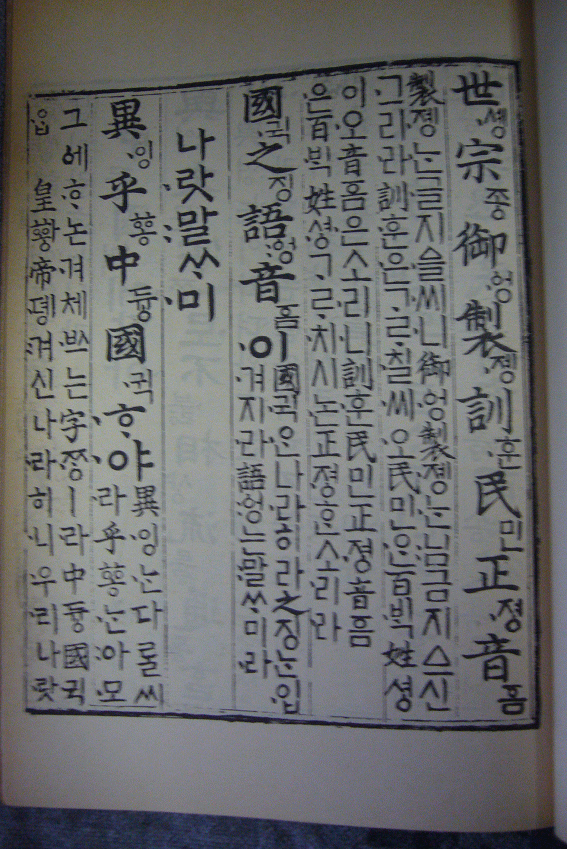 世솅〮宗조ᇰ御ᅌᅥᆼ〮製졩〮訓훈〮民민正져ᇰ〮音ᅙᅳᆷ
製졩〮는〮글〮지ᅀᅳᆯ〮씨니〮御ᅌᅥᆼ〮製졩〮는〮님〯금〮지ᅀᅳ샨〮
그〮리라〮訓훈〮은〮ᄀᆞᄅᆞ칠〮씨오〮民민ᄋᆞᆫ〮百ᄇᆡᆨ〮姓셔ᇰ〮
이오〮音ᅙᅳᆷ은〮소리〮니〮訓훈〮民민正져ᇰ〮音ᅙᅳᆷ
은〮百ᄇᆡᆨ〮姓셔ᇰ〮ᄀᆞᄅᆞ치시〮논〮正져ᇰ〮ᄒᆞᆫ〮소리〮라〮
國귁〮之징語ᅌᅥᆼ〯音ᅙᅳᆷ이〮
國귁〮ᄋᆞᆫ〮나라〮히라〮之징ᄂᆞᆫ〮입〮
겨지〮라〮語ᅌᅥᆼ〯는〮말〯ᄊᆞ미〮라〮
나랏〮말〯ᄊᆞ미〮
異잉〮乎ᅘᅩᆼ中듀ᇰ國귁〮ᄒᆞ〮야〮
異잉〮ᄂᆞᆫ〮다ᄅᆞᆯ〮씨
라〮乎ᅘᅩᆼᄂᆞᆫ〮아〮모
그ᅌᅦ〮ᄒᆞ논〮겨체〮ᄡᅳ는〮字ᄍᆞᆼ〮ㅣ라〮中듀ᇰ國귁〮
ᄋᆞᆫ〮 皇ᅘᅪᇰ帝뎽〮겨신〮나라〮히니〮우리〮나랏〮